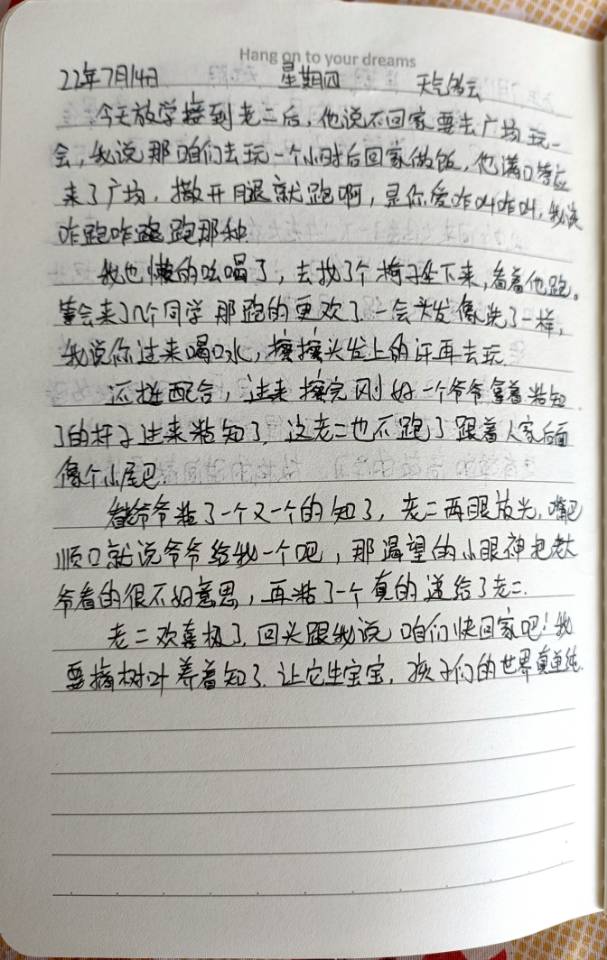 Hang on to your dreams
22年7月14日 星期四 天气多云
今天放学接到老二后，他说不回家要去广场玩一
会，我说那咱们去玩一个小时后回家做饭，他满口答应
来了广场，撒开腿就跑啊，是你爱咋叫咋叫，我说
咋跑咋跑那种
我也懒的吆喝了，去找了个椅子坐下来，看着他跑。
会来了几个同学那跑的更欢了一会头发像洗了一样，
我说你过来喝口水，擦擦头发上的汗再去玩
还挺配合，过来擦完刚好一个爷爷拿着粘知
了的杆子过来粘知了，这老二也不跑了跟着人家后面
像个小尾巴
看爷爷粘了一个又一个的知了，老二两眼放光，嘴巴
顺口就说爷爷给我一个吧，那渴望的小眼神把老大
爷看的很不好意思，再粘了一个真的送给了老二
老二欢喜极了，回头跟我说咱们快回家吧！我
要摘树叶养着知了，让它生宝宝，孩子们的世界真单纯